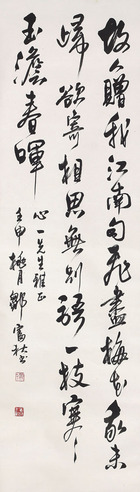 故人贈我江南句飛盡梅花我未
歸欲寄相思無別語一枝寒
玉澹春暉
心一先生雅正
壬申月鄒富秋